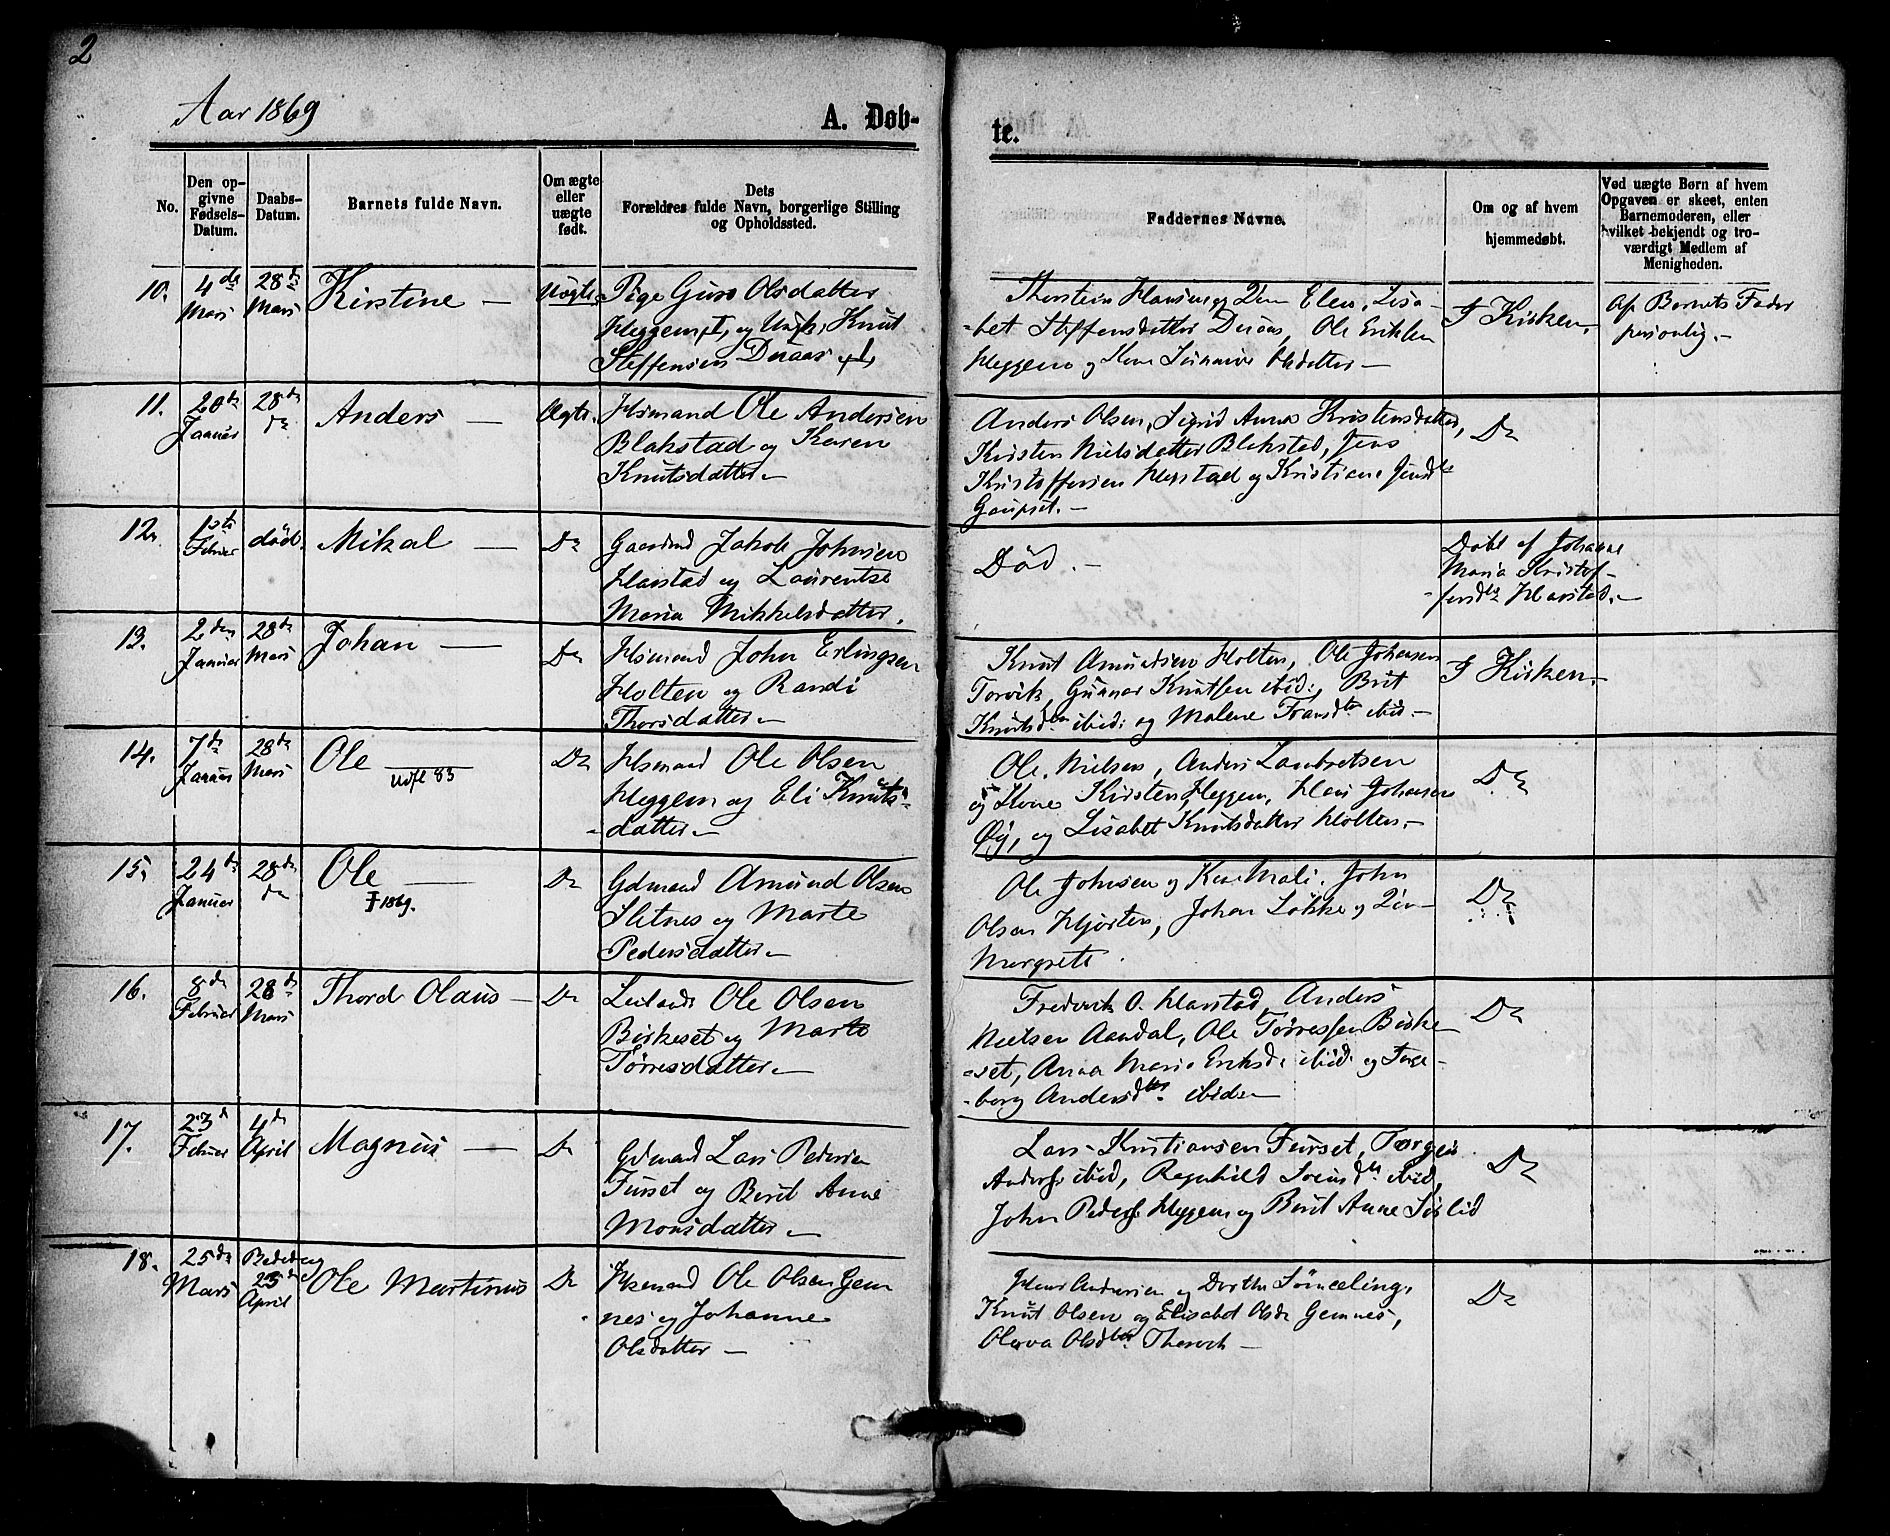 2
Aar 1869
A. Døb-
te.
No.
Den op-
givne
Fødsels-
Datum.
Daabs-
Datum.
Barnets fulde Navn.
Om ægte
eller
uægte
født.
Dets
Forældres fulde Navn, borgerlige Stilling
og Opholdssted.
Faddernes Navne.
Om og af hvem
hjemmedøbt.
Ved uægte Børn af hvem
Opgaven er skeet, enten
Barnemoderen, eller
hvilket bekjendt og tro-
værdigt Medlem af
Menigheden.
10.
4de
Mars
28de
Mars
Kirstine —
Uægte
Pige Guro Olsdatter
Heggem, og Ungk. Knut
Steffensen
Thorstein Hansen og Elen, Lisa-
-bet Steffensdatter Ole Eriksen
Heggem og Olsdatter —
I Kirken.
Af Barnets Fader
personlig. —
11.
20de
Januar
28de
do
Anders —
Ægte.
Hsmand Ole Andersen
Blakstad og Karen
Knutsdatter —
Anders Olsen, Sigrid Anna Kristensdatter,
Kirsten Nielsdatter Blakstad, Jens
Kristoffersen Harstad og Kristiane
Gaupset. —
Do
12.
1ste
Februar
død.
Mikal —
Do
Gaardmd Jakob Johnsen
Harstad og Laurentse
Maria Mikkelsdatter.
Død. —
Døbt af Johanne
Maria Kristof-
-fersdtr Harstad. —
13.
2den
Januar
28de
Mars
Johan —
Do
Hsmand John Erlingsen
Holten og Randi
Thorsdatter —
Knut Amundsen Holten, Ole Johansen
Torvik, Gunnar Knutsen ibid:, Brit
Knutsdtr ibid: og Malene Fransdtr ibid —
I Kirken. —
14.
7de
Januar
28de
Mars
Ole —
Udfl 83
Do
Hsmand Ole Olsen
Heggem og Eli Knuts-
-datter —
Ole Nielsen, Anders
og Kone Kirsten Heggem, Hans Johansen
Øy, og Lisabet Knutsdatter Holten. —
Do
15.
24de
Januar
28de
do
Ole —
† 1869.
Do
Gdmand Amund Olsen
Slitnes og Marte
Pedersdatter —
Ole Johnsen og Kone Mali, John
Olsen Hjorten, Johan Løkke og
Margrete.
Do
16.
8de
Februar
28de
Mars
Thord Olaus —
Do
Ole Olsen
Birkeset og Marte
Tørresdatter —
Frederik O. Harstad, Anders
Nielsen Aandal, Ole Tørressen Birke-
-set, Anna Maria Eriksd. ibid: og Inge-
-borg Andersdtr ibid —
Do
17.
23de
Februar
4de
April
Magnus —
Do
Gdmand Lars Pedersen
Furset og Berit Anne
Monsdatter —
Lars Kristiansen Furset, Torgeir
Anders. ibid, Ragnhild ibid,
John Peders. Heggem og Berit Anne Sørlid
Do
18.
25de
Mars
Bededag
23de
April
Ole Martinus
Do
Hsmand Ole Olsen Gem-
nes og Johanne
Olsdatter —
Andersen og Dorthe
Knut Olsen og Elisabet Olsdr Gemnes,
Olava Olsdtr. —
Do